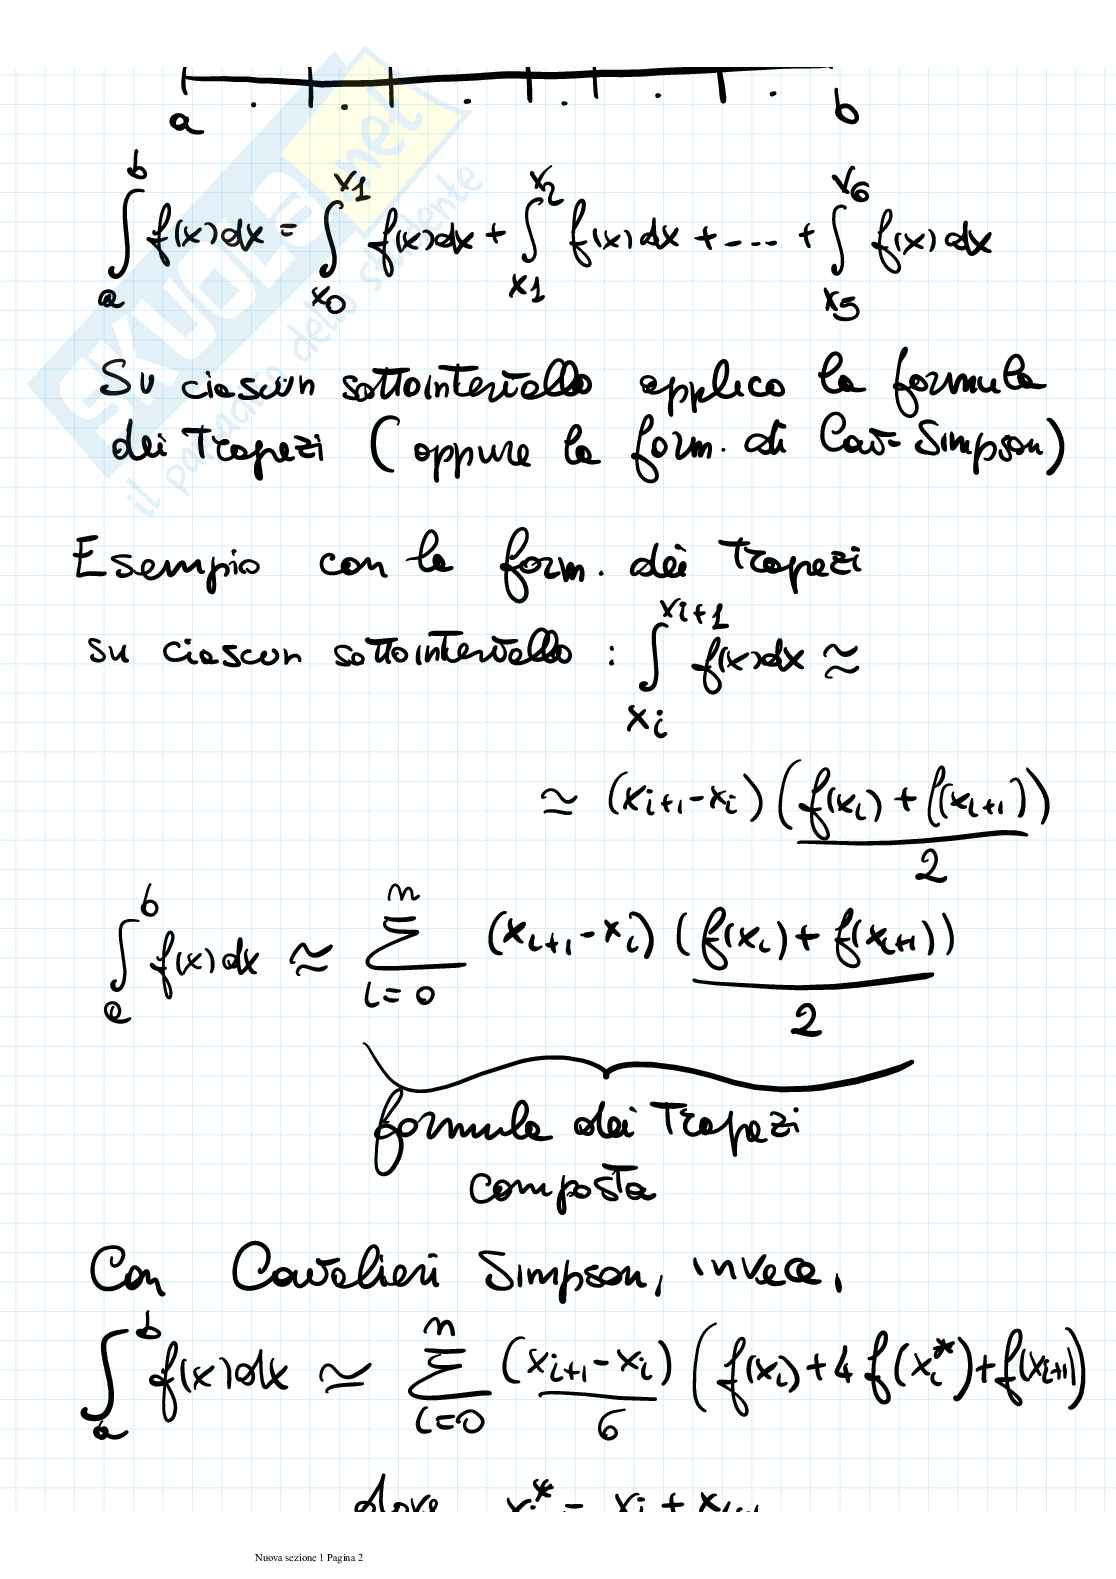 a b
∫_a^b f(x)dx = ∫_{x0}^{x1} f(x)dx + ∫_{x1}^{x2} f(x)dx + --.. + ∫_{x5}^{x6} f(x)dx
Su ciascun sottointervallo applico la formula
dei Trapezi (oppure la form. di Cav-Simpson)
Esempio con la form. dei Trapezi
su ciascun sottointervallo : ∫_{xi}^{xi+1} f(x)dx ≈
≃ (x_{i+1} - x_i) (f(x_i) + f(x_{i+1}))/2
∫_a^b f(x)dx ≈ Σ_{i=0}^n (x_{i+1} - x_i) (f(x_i) + f(x_{i+1}))/2
formula dei Trapezi
composta
Con Cavalieri Simpson, invece,
∫_a^b f(x)dx ≃ Σ_{i=0}^n (x_{i+1} - x_i)/6 (f(x_i) + 4 f(x_i^*) + f(x_{i+1}))
dove x_i^* = x_i + x_{i+1}
Nuova sezione 1 Pagina 2
SKUOLA.net
il paradiso dello studente